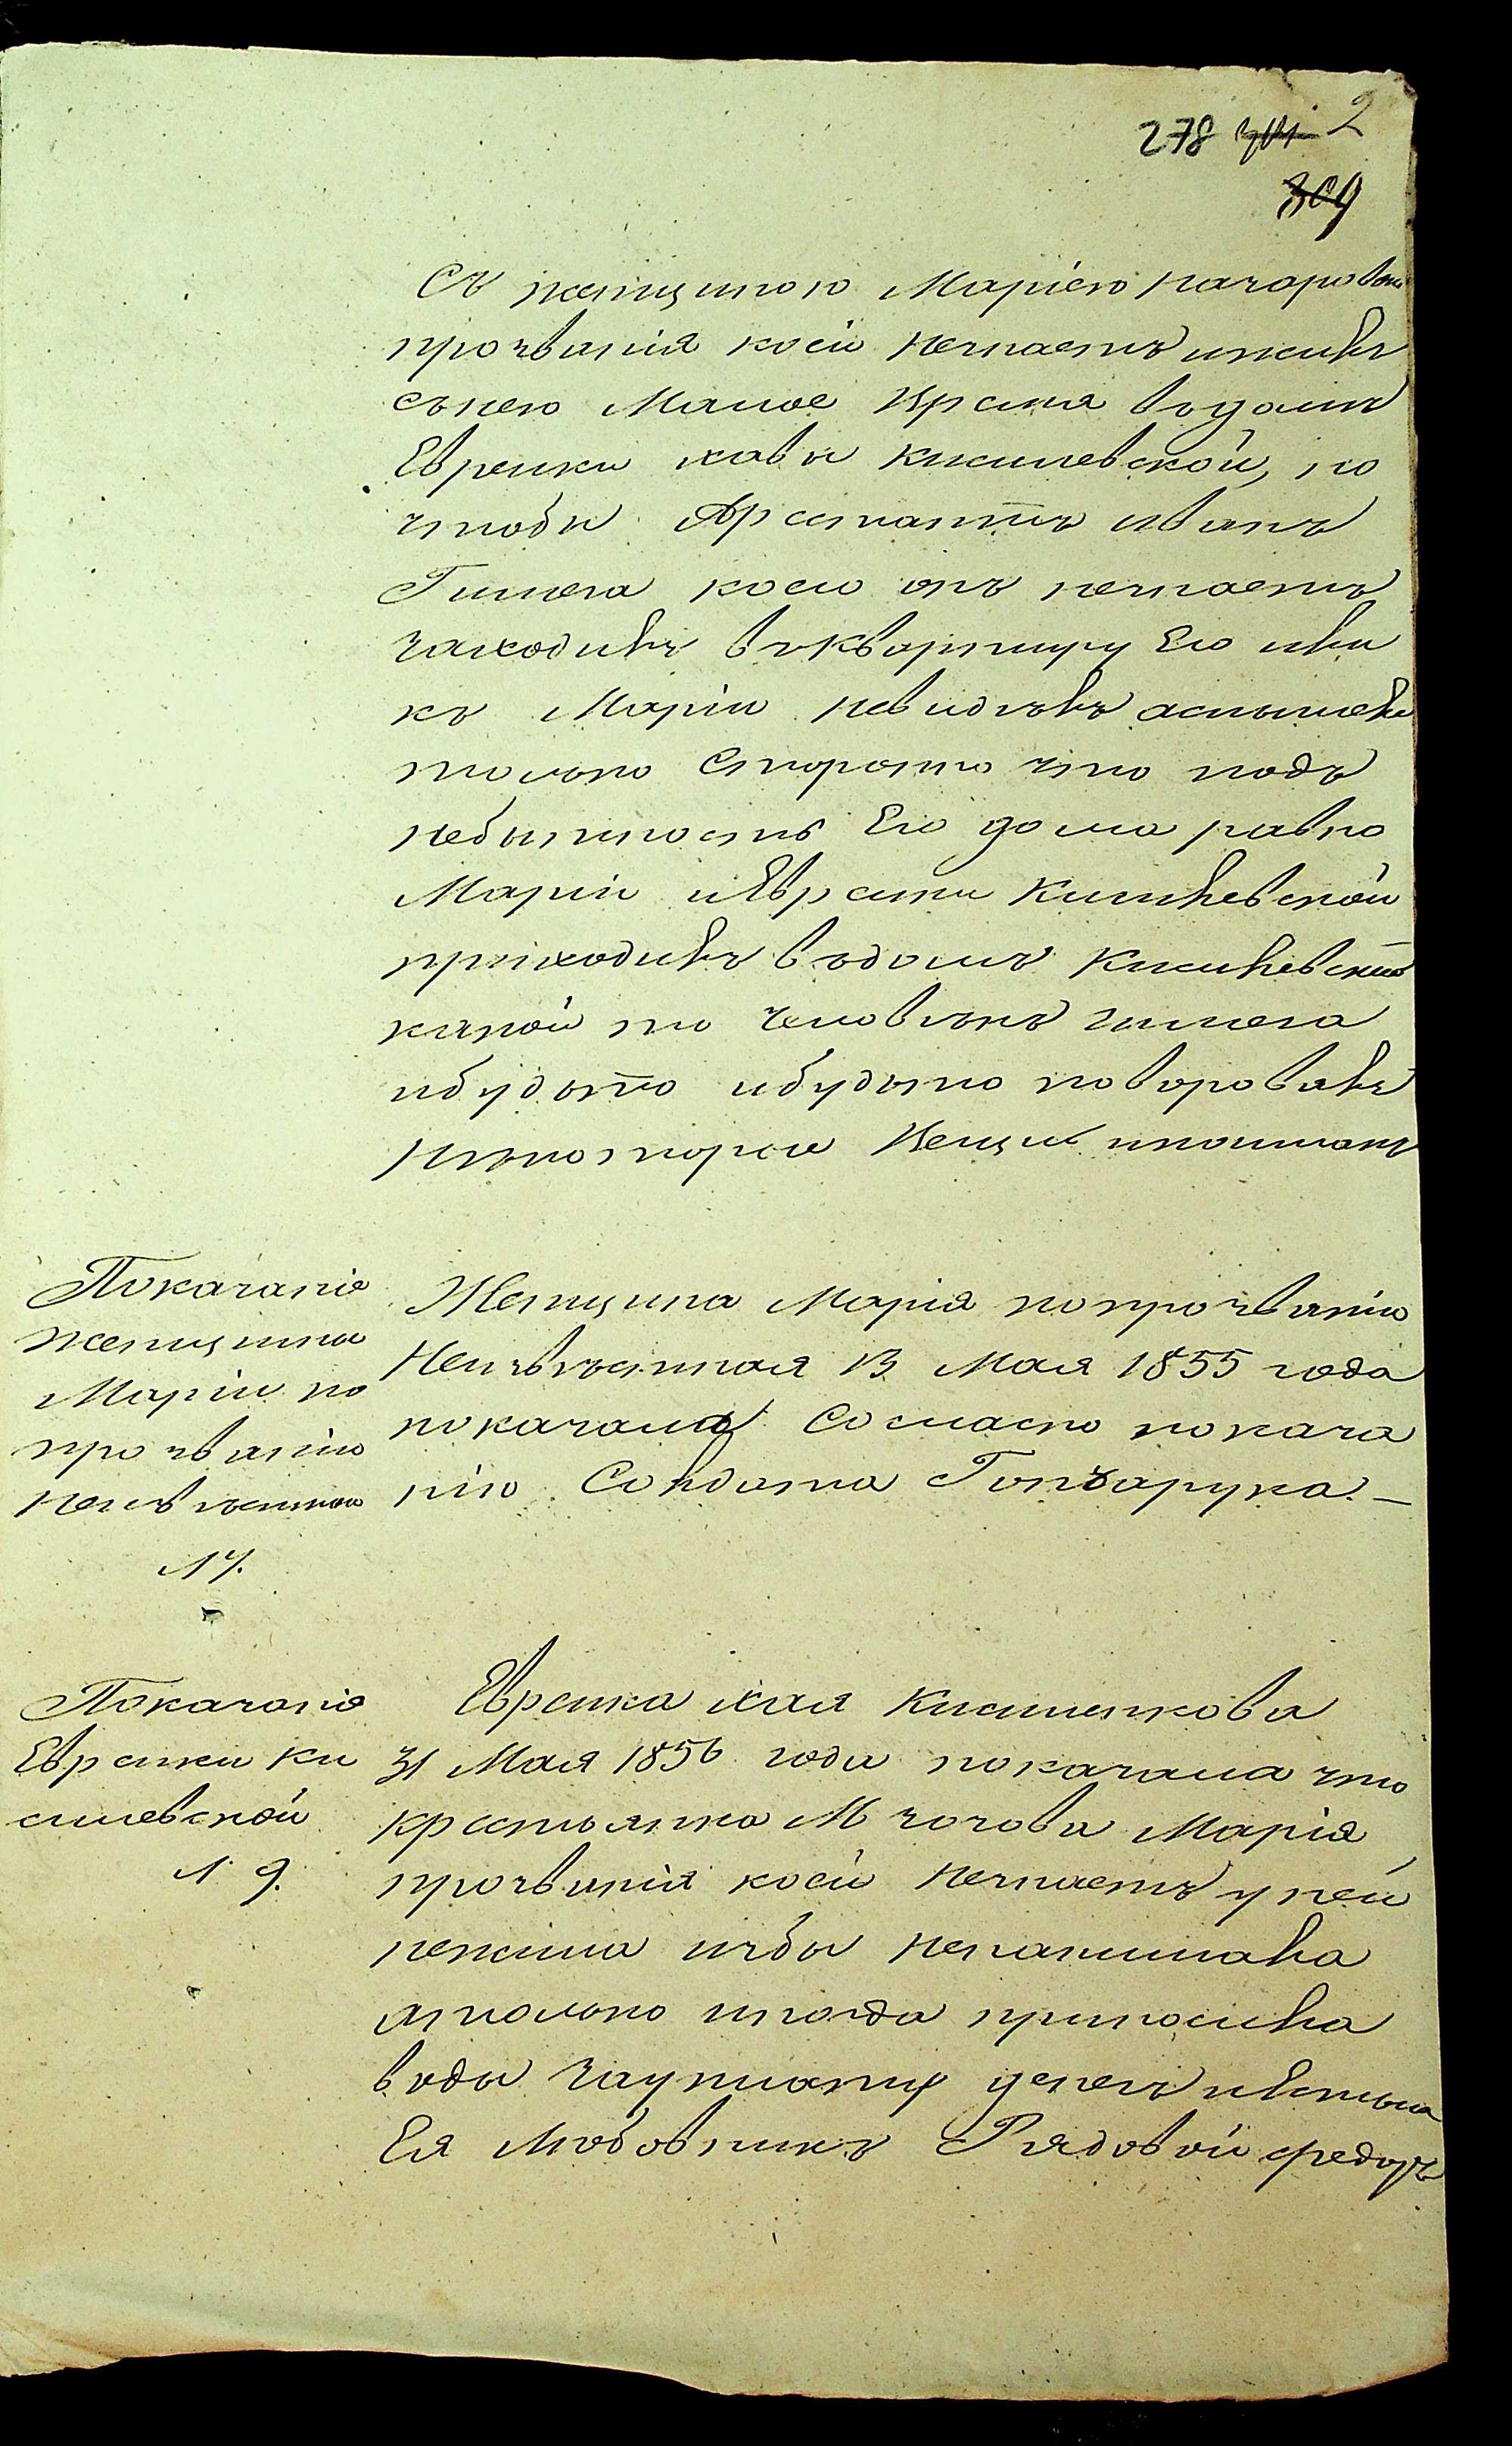 278 2
309
Съ женщиною Маріею
прозванія коей незнаетъ и жилъ
сънею Малое время въдомѣ
Еврейки хавы Кисилевской, но
чтобы Арестантъ иванъ
Гилева коего онъ незнаетъ
заходилъ въквартиру Его или
къ Маріи невидѣлъ аслышалъ
только Стороною что подъ
небытность Его дома равно
Маріи и Еврейки Кисилевской
приходилъ въдомъ Кисилевской
какой то человѣкъ гилева
ибудьто ибудьто поворовалъ
нѣкоторые Вещи ипойманъ
Показаніе
женщины
Маріи по
прозванію
неизвѣстной
л 7.
Женщина Марія попрозванію
Неизвѣстная 13 Мая 1855 года
показала Согласно показа
нію Солдата Гончарука. —
Показаніе
Еврейки Ки
силевской
л 9.
Еврейка хая Кисиленкова
31 Мая 1856 года показала что
крестьянка Марія
прозванія коей незнаетъ уней
нежила избы ненанимала
атолько иногда приносила
воды зауплату денегъ
Ея Любовникъ Рядовой федоръ